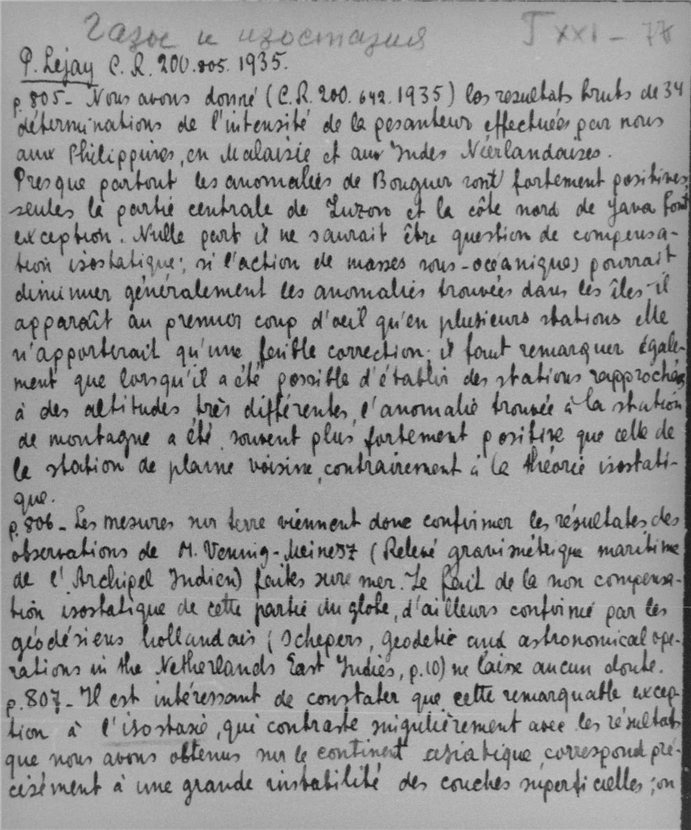 и изостазия T XXI - 77
P. Lejay C. R. 200.805. 1935.
p. 805 - Nous avons donné (C.R. 200. 642. 1935) les resultats bruts de 34
déterminations de l'intensité de la pesanteur effectuées par nous
aux Philippines, en Malaisie et aux Indes Néerlandaises.
Presque partout les anomalies de Bouguer sont fortement positives,
seules la partie centrale de Luzon et la côte nord de Java font
exception. Nulle part il ne saurait être question de compensa-
tion isostatique; si l'action de masses sous-océaniques pourrait
diminuer généralement les anomalies trouvées dans les îles il
apparaît au premier coup d'oeil qu'en plusieurs stations elle
n'apporterait qu'une faible correction; il faut remarquer égale-
ment que lorsqu'il a été possible d'établir des stations rapprochées
à des altitudes très différentes, l'anomalie trouvée à la station
de montagne a été souvent plus fortement positive que celle de
la station de plaine voisine, contrairement à la théorie isostati-
que.
p. 806 - Les mesures sur terre viennent donc confirmer les résultates des
observations de M. Vening-Meinesz (Relevé gravimétrique maritime
de l'Archipel Indien) faites sur mer. Le fait de la non compensa-
tion isostatique de cette partie du globe, d'ailleurs confirmé par les
géodésiens hollandais (Schepers, geodetic and astronomical ope-
rations in the Netherlands East Indies, p. 10) ne laisse aucun doute.
p. 807 - Il est intéressant de constater que cette remarquable excep-
tion à l'isostasie, qui contraste singulièrement avec les résultats
que nous avons obtenus sur le continent asiatique, correspond pré-
cisément à une grande instabilité des couches superficielles; on